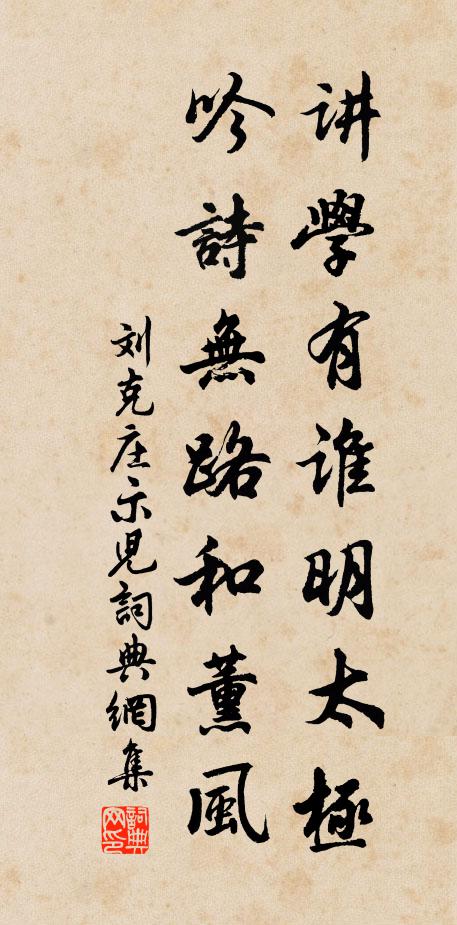 讲學有谁明太極
吟詩無路和薰風
刘克庄示児詞典網集
詞典网印